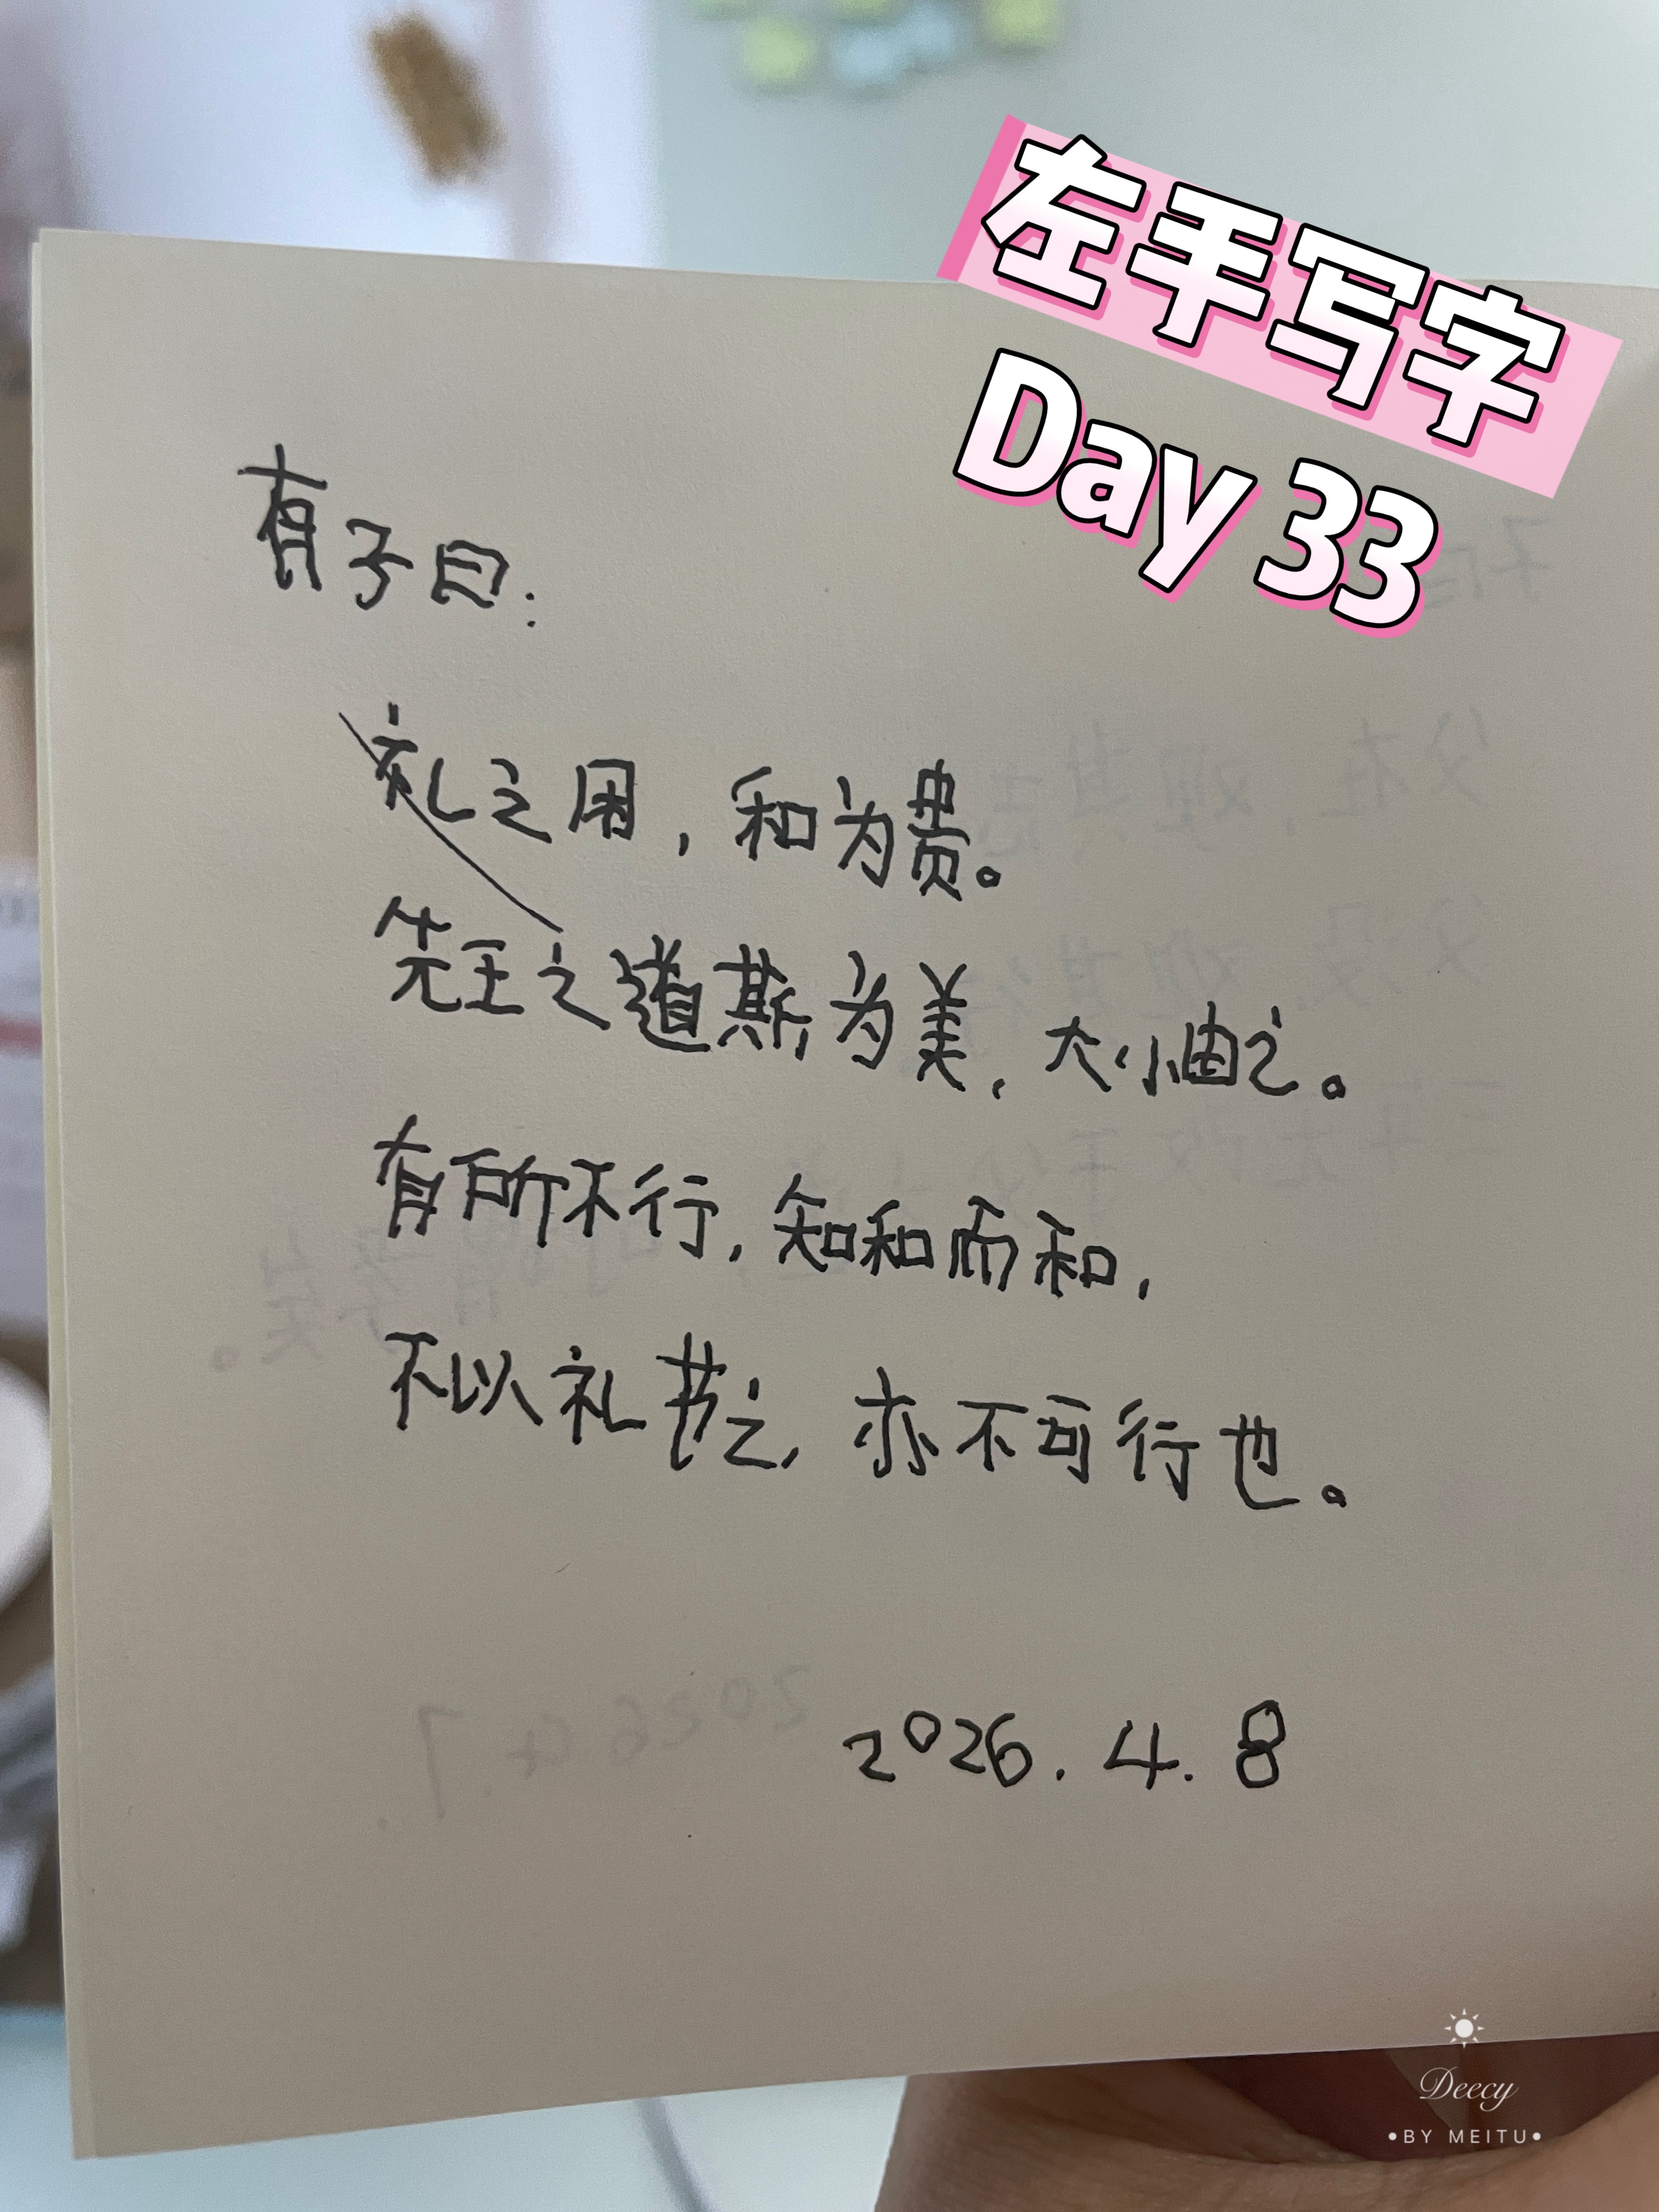 左手写字
Day 33
有子曰：
礼之用，和为贵。
先王之道斯为美，大小由之。
有所不行，知和而和，
不以礼节之，亦不可行也。
2026.4.8
Deecy
•BY MEITU•